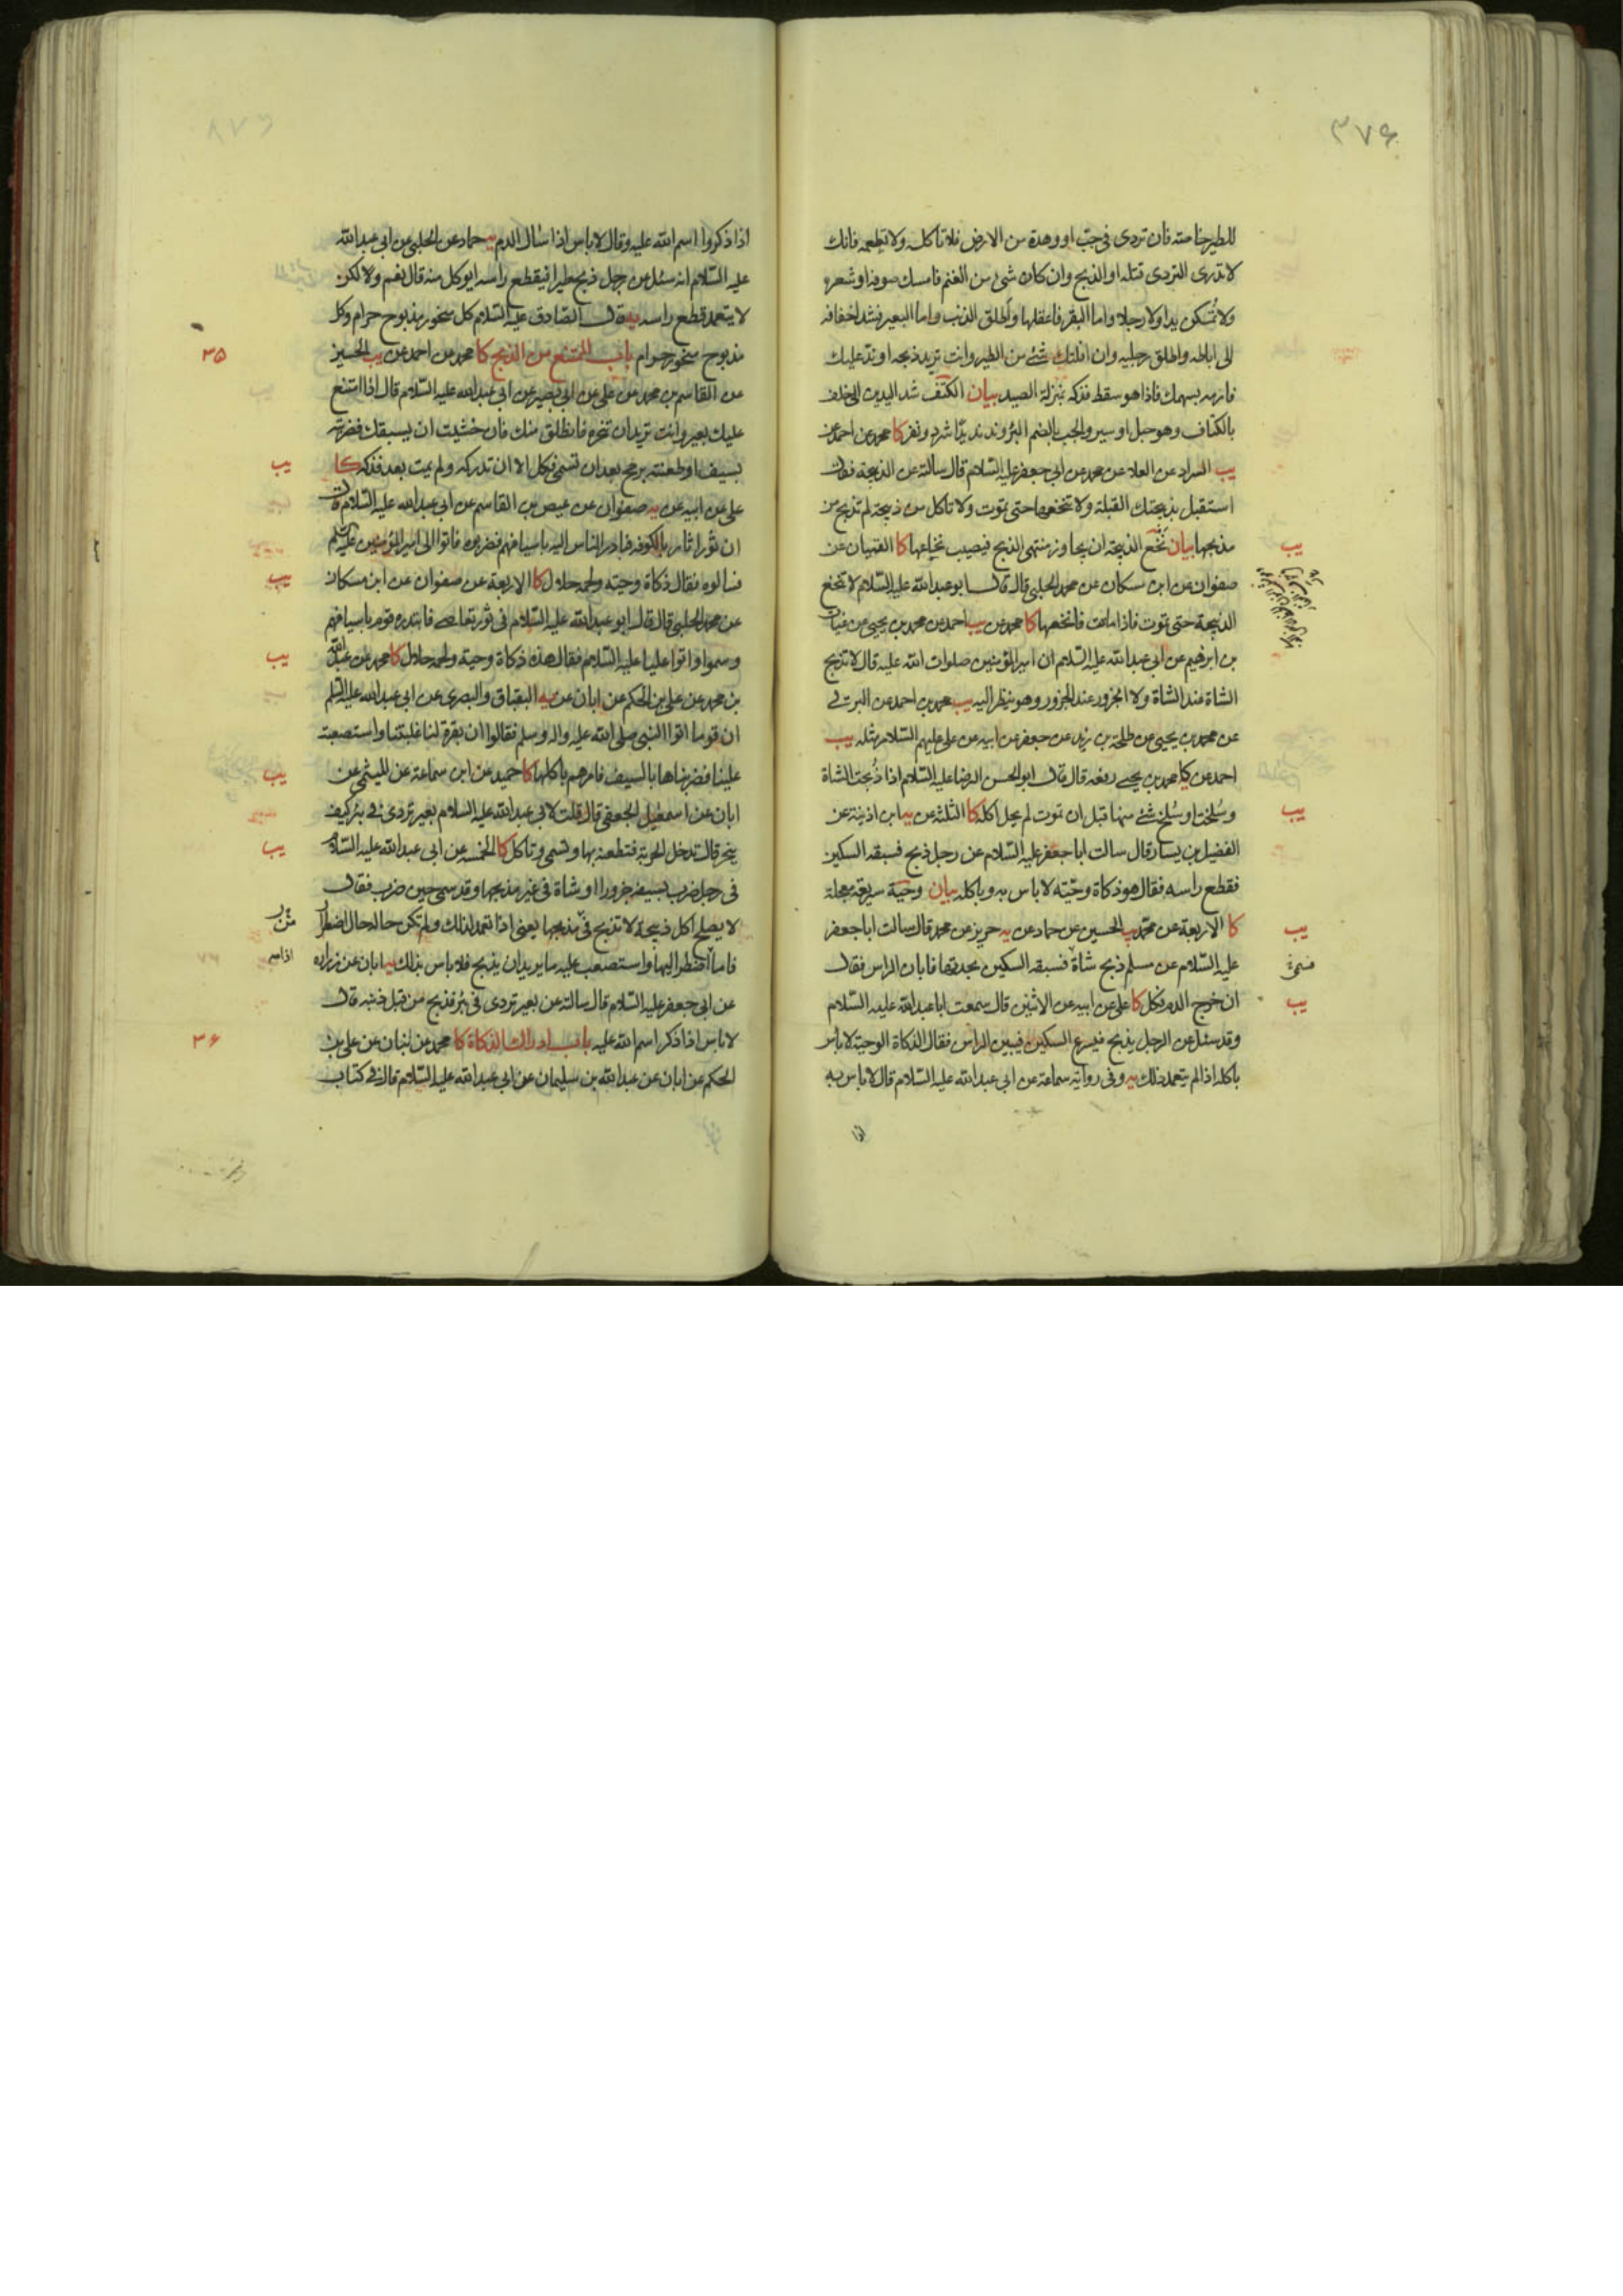 ۳۷۶
للطير خاصة فان تردى فى جبّ او وهدة من الارض فلا تاكله ولا تطعمه فانك
لا تدرى التردى قتله او الذبح وان كان شئ من الغنم فامسك صوفه او شعره
ولا تمسكن يدا ولا رجلا واما البقر فاعقلها واطلق الذنب واما البعير فشد اخفافه
الى اباطه واطلق رجليه وان افلتك شئ من الطير وانت تريد ذبحه او ندّ عليك
فارمه بسهمك فاذا هو سقط فذكه بمنزلة الصيد بيان الكتف شد اليدين الى خلف
بالكتاف وهو حبل او سير والجب بالضم البئر وند ندّا شرد ونفر كا محمد عن احمد عن
يب السراد عن العلا عن محمد عن ابى جعفر عليه السّلام قال سالته عن الذبيحة فقال
استقبل بذبيحتك القبلة ولا تنخعها حتى تموت ولا تاكل من ذبيحة لم تذبح من
مذبحها بيان نخع الذبيحة ان يجاوز منتهى الذبح فيصيب نخاعها كا القميان عن
يب
صفوان عن ابن مسكان عن محمد الحلبى قال قال ابو عبد الله عليه السّلام لا تنخع
الذبيحة حتى تموت فاذا ماتت فانخعها كا محمد عن يب احمد عن محمد بن يحيى عن غياث
بن ابرهيم عن ابى عبد الله عليه السّلام ان امير المؤمنين صلوات الله عليه قال لا تذبح
الشاة عند الشاة ولا الجزور عند الجزور وهو ينظر اليه يب محمد بن احمد عن البرقى
عن محمد بن يحيى عن طلحة بن زيد عن جعفر عن ابيه عن على عليهم السّلام مثله يب
احمد عن كا محمد بن يحيى رفعه قال قال ابو الحسن الرضا عليه السّلام اذا ذُبحت الشاة
وسُلخت او سُلخ شئ منها قبل ان تموت لم يحل اكله كا الثلثة عن يه ابن اذينة عن
يب
الفضيل بن يسار قال سالت ابا جعفر عليه السّلام عن رجل ذبح فسبقه السكين
فقطع راسه فقال هو ذكاة وحيّة لا باس به وباكله بيان وحيّة سريعة معجلة
كا الاربعة عن محمّد يب الحسين عن حماد عن يه حريز عن محمد قال سالت ابا جعفر
يب
عليه السّلام عن مسلم ذبح شاة فسبقه السكين بحدتها فابان الراس فقال
ان خرج الدم فكل كا على عن ابيه عن الاثنين قال سمعت ابا عبد الله عليه السّلام
يب
وقد سئل عن الرجل يذبح فيسرع السكين فيبين الراس فقال الذكاة الوحية لا باس
باكله اذا لم يتعمد ذلك يه وفى رواية سماعة عن ابى عبد الله عليه السّلام قال لا باس به
اذا
اذا ذكروا اسم الله عليه وقال لا باس اذا سال الدم يه حماد عن الحلبى عن ابى عبد الله
عليه السّلام انه سئل عن رجل ذبح طيرا فيقطع راسه ايوكل منه قال نعم ولكن
لا يتعمد قطع راسه يه قال الصّادق عليه السّلام كل منحور مذبوح حرام وكل
مذبوح منحور حرام باب الممتنع من الذبح كا محمد عن احمد عن يب الحسين
۳۵
عن القاسم بن محمد عن على عن ابى بصير عن ابى عبد الله عليه السّلام قال اذا امتنع
عليك بعير وانت تريد ان تنحره فانطلق منك فان خشيت ان يسبقك فضربته
بسيف او طعنته برمح بعد ان تسمى فكل الا ان تدركه ولم يمت بعد فذكه كا
يب
على عن ابيه عن يه صفوان عن عيص بن القاسم عن ابى عبد الله عليه السّلام قال
ان ثورا ثار بالكوفة فبادر الناس اليه باسيافهم فضربوه فاتوا الى امير المؤمنين عليه السّلم
فسالوه فقال ذكاة وحيّة ولحمه حلال كا الاربعة عن صفوان عن ابن مسكان
يب
عن محمد الحلبى قال قال ابو عبد الله عليه السّلام فى ثور تعاصى فابتدره قوم باسيافهم
وسموا واتوا عليا عليه السّلام فقال هذه ذكاة وحية ولحمه حلال كا محمد عن عبد الله
يب
بن محمد عن على بن الحكم عن ابان عن يه البقباق والبصرى عن ابى عبد الله عليه السّلم
ان قوما اتوا النبى صلى الله عليه واله وسلم فقالوا ان بقرة لنا غلبتنا واستصعبت
علينا فضربناها بالسيف فامرهم باكلها كا حميد عن ابن سماعة عن الميثمى عن
يب
ابان عن اسمعيل الجعفى قال قلت لابى عبد الله عليه السلام بعير تردى فى بئر كيف
ينحر قال تدخل الحربة فتطعنه بها وتسمى وتاكل كا الخمسة عن ابى عبد الله عليه السّلام
يب
فى رجل ضرب بسيفه جزورا او شاة فى غير مذبحها وقد سمى حين ضرب فقال
لا يصلح اكل ذبيحة لا تذبح فى مذبحها يعنى اذا تعمد لذلك ولم تكن حاله حال اضطرار
فاما اضطر اليها واستصعب عليه ما يريد ان يذبح فلا باس بذلك يه ابان عن زرارة
عن ابى جعفر عليه السّلام قال سالته عن بعير تردى فى بئر فذبح من قبل ذنبه قال
لا باس اذا ذكر اسم الله عليه باب ادراك الذكاة كا محمد عن بنان عن على بن
۳۶
الحكم عن ابان عن عبد الله بن سليمان عن ابى عبد الله عليه السّلام قال فى كتاب